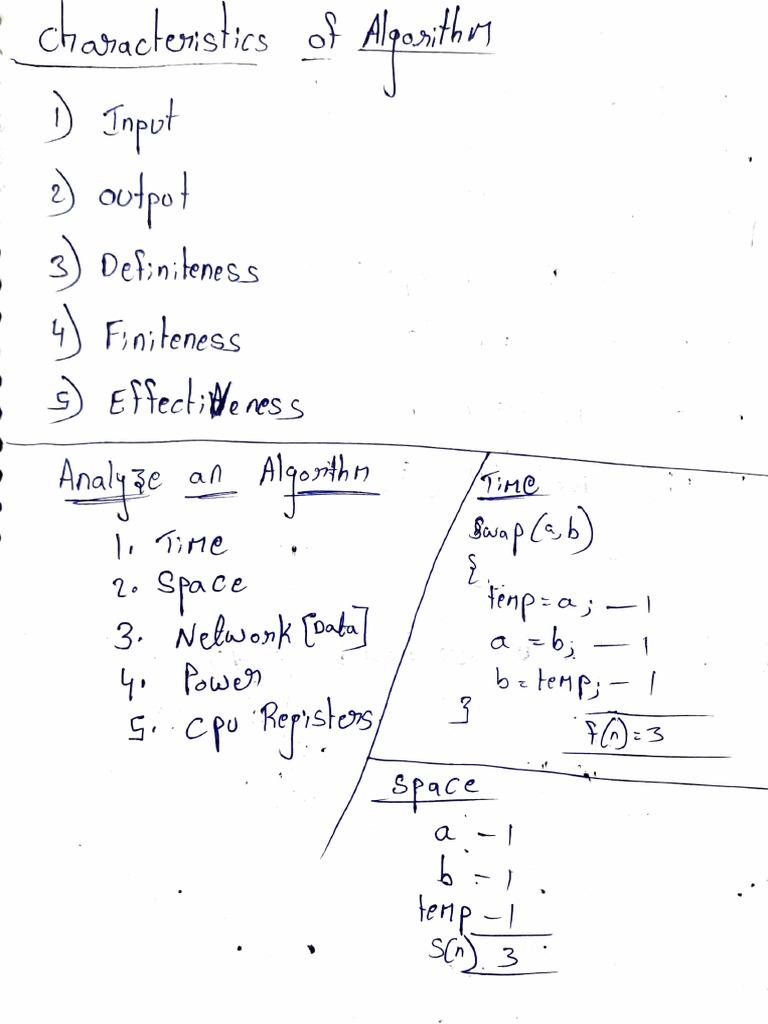 Characteristics of Algorithm
1) Input
2) Output
3) Definiteness
4) Finiteness
5) Effectiveness
Analyze an Algorithm
1. Time
2. Space
3. Network [Data]
4. Power
5. CPU Registers
Time
Swap(a,b)
{
temp=a; — 1
a = b; — 1
b = temp; — 1
}
f(n)=3
Space
a - 1
b - 1
temp - 1
S(n) 3